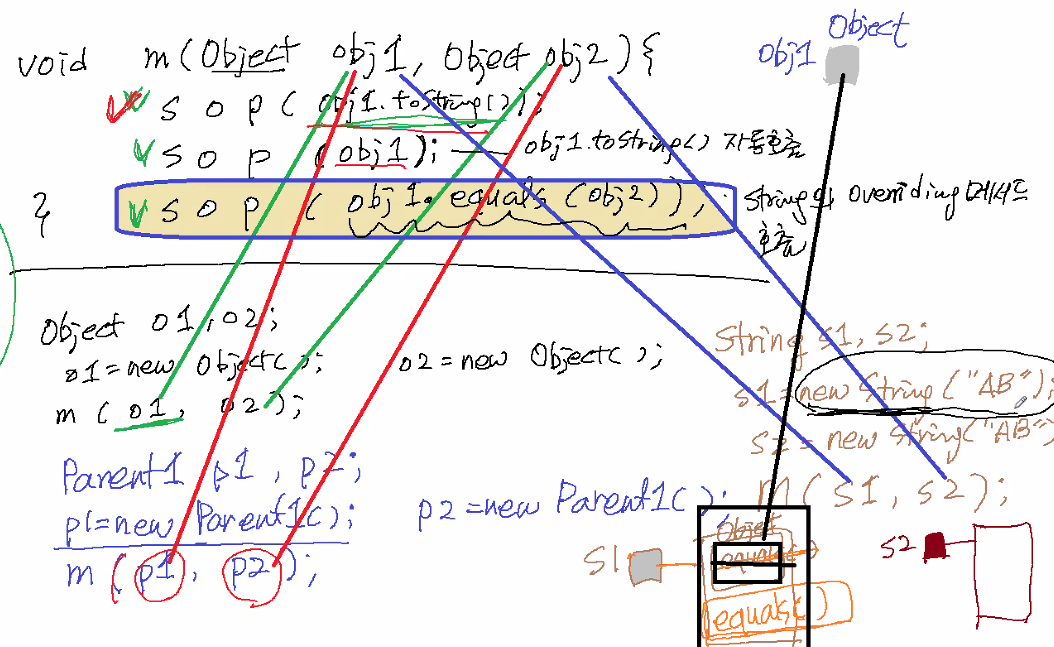 Object
obj1
void m(Object obj1, Object obj2){
s o p ( obj1.toString());
s o p (obj1); — obj1.toString() 자동호출
s o p ( obj1.equals (obj2));
}
String의 overriding 메서드
호출
Object o1, o2;
o1=new Object(); o2=new Object();
m ( o1, o2);
String s1, s2;
s1=new String("AB");
s2 = new String("AB")
m(s1, s2);
Parent1 p1, p2;
p1=new Parent1(); p2=new Parent1();
m ( p1, p2 );
Object
equals()
S1
equals()
S2